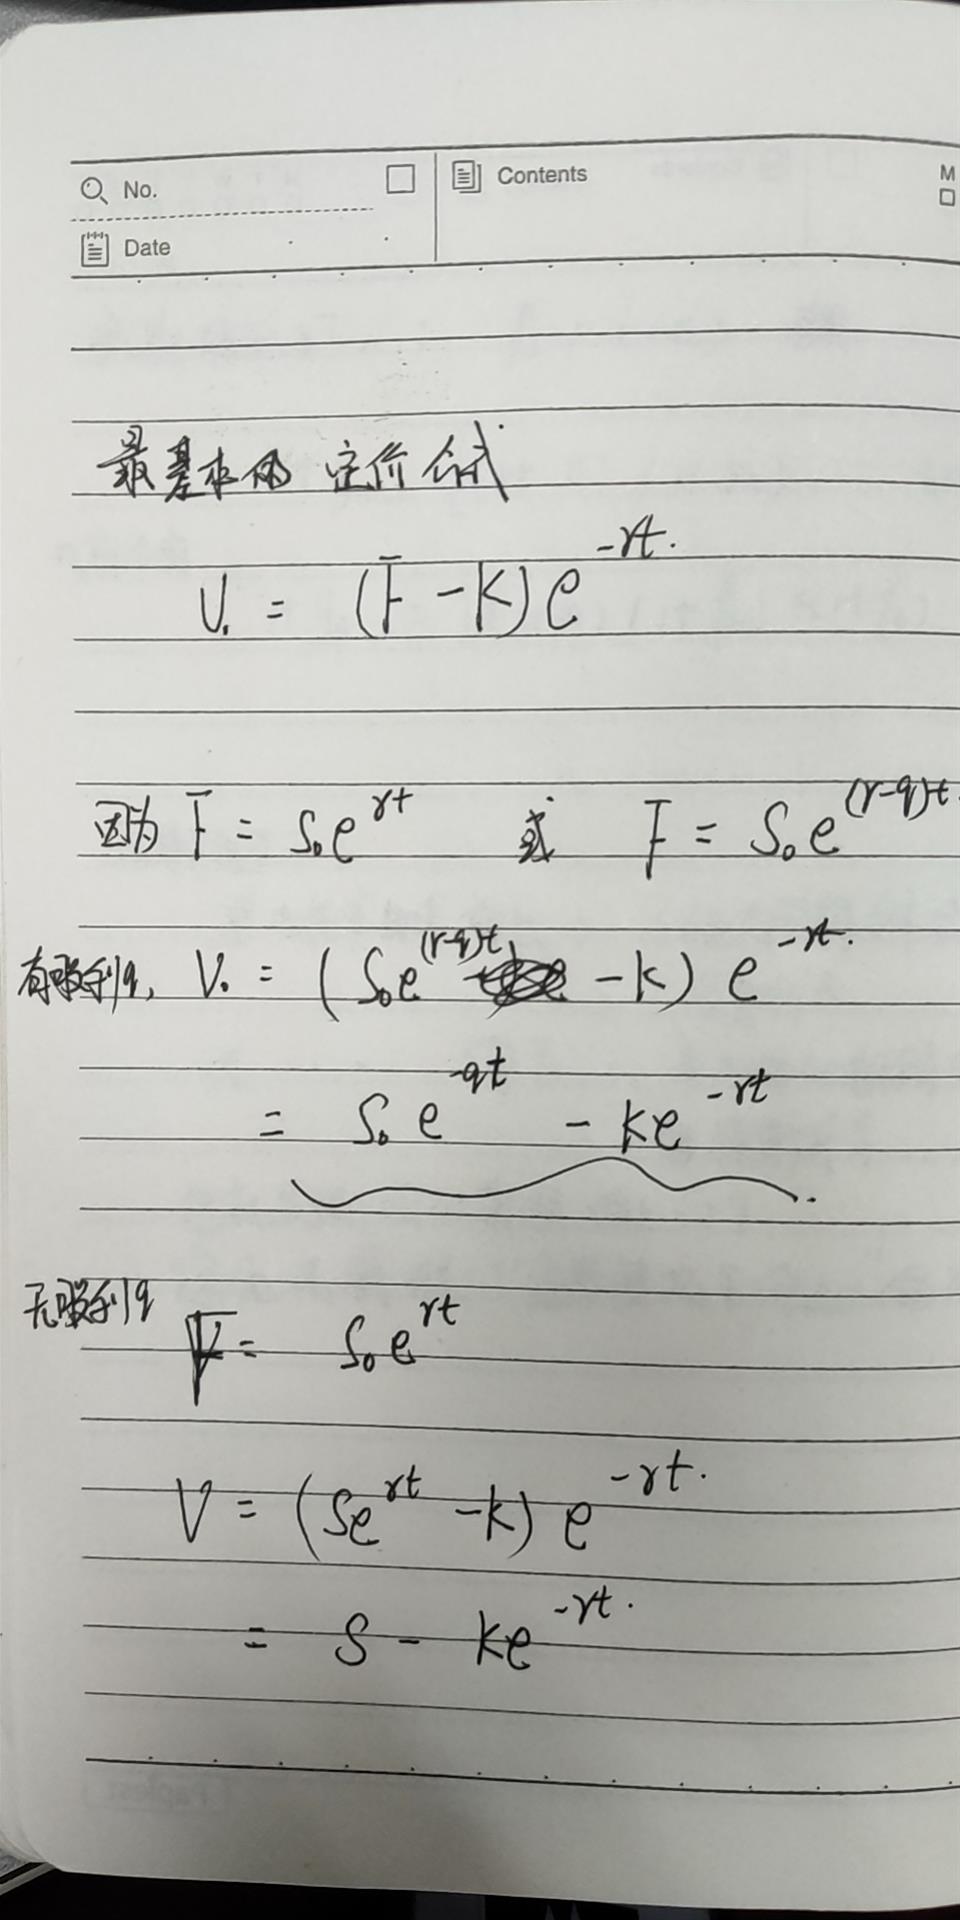 No.
Contents
M
Date
最基本的定价公式
V. = (F - K) e^{-rt}.
因为 F = S₀e^{rt} 或 F = S₀e^{(r-q)t}.
有股利q, V₀ = (S₀e^{(r-q)t} - K) e^{-rt}.
= S₀e^{-qt} - Ke^{-rt}
无股利q
F = S₀e^{rt}
V = (Se^{rt} - K) e^{-rt}.
= S - Ke^{-rt}.